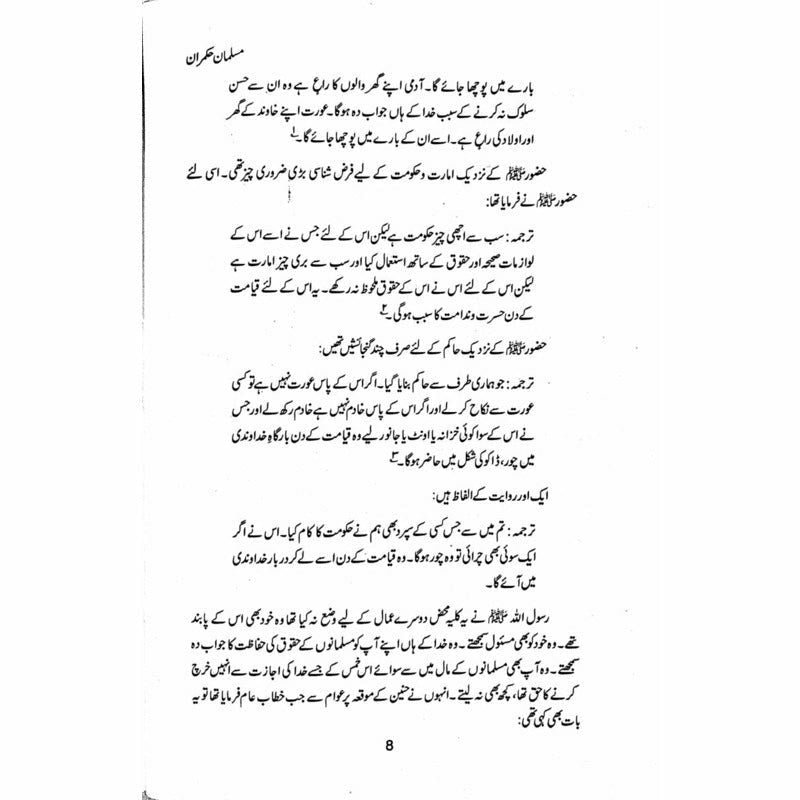 مسلمان حکمران
بارے میں پوچھا جائے گا۔ آدمی اپنے گھر والوں کا راعٍ ہے وہ ان سے حسن
سلوک نہ کرنے کے سبب خدا کے ہاں جواب دہ ہوگا۔ عورت اپنے خاوند کے گھر
اور اولاد کی راعٍ ہے۔ اسے ان کے بارے میں پوچھا جائے گا۔ ۱
حضور ﷺ کے نزدیک امارت و حکومت کے لیے فرض شناسی بڑی ضروری چیز تھی۔ اسی لئے
حضور ﷺ نے فرمایا تھا:
ترجمہ: سب سے اچھی چیز حکومت ہے لیکن اس کے لئے جس نے اسے اس کے
لوازمات صحیحہ اور حقوق کے ساتھ استعمال کیا اور سب سے بری چیز امارت ہے
لیکن اس کے لئے اس نے اس کے حقوق ملحوظ نہ رکھے۔ یہ اس کے لئے قیامت
کے دن حسرت و ندامت کا سبب ہوگی۔ ۲
حضور ﷺ کے نزدیک حاکم کے لئے صرف چند گنجائشیں تھیں:
ترجمہ: جو ہماری طرف سے حاکم بنایا گیا۔ اگر اس کے پاس عورت نہیں ہے تو کسی
عورت سے نکاح کر لے اور اگر اس کے پاس خادم نہیں ہے خادم رکھ لے اور جس
نے اس کے سوا کوئی خزانہ یا اونٹ یا جانور لیے وہ قیامت کے دن بارگاہِ خداوندی
میں چور، ڈاکو کی شکل میں حاضر ہوگا۔ ۳
ایک اور روایت کے الفاظ ہیں:
ترجمہ: تم میں سے جس کسی کے سپرد بھی ہم نے حکومت کا کام کیا۔ اس نے اگر
ایک سوئی بھی چرائی تو وہ چور ہوگا۔ وہ قیامت کے دن اسے لے کر دربار خداوندی
میں آئے گا۔
رسول اللہ ﷺ نے یہ کلیہ محض دوسرے عمال کے لیے وضع نہ کیا تھا وہ خود بھی اس کے پابند
تھے۔ وہ خود کو بھی مسئول سمجھتے۔ وہ خدا کے ہاں اپنے آپ کو مسلمانوں کے حقوق کی حفاظت کا جواب دہ
سمجھتے۔ وہ آپ بھی مسلمانوں کے مال میں سے سوائے اس خمس کے جسے خدا کی اجازت سے انہیں خرچ
کرنے کا حق تھا، کچھ بھی نہ لیتے۔ انہوں نے حنین کے موقعہ پر عوام سے جب خطاب عام فرمایا تھا تو یہ
بات بھی کہی تھی:
8